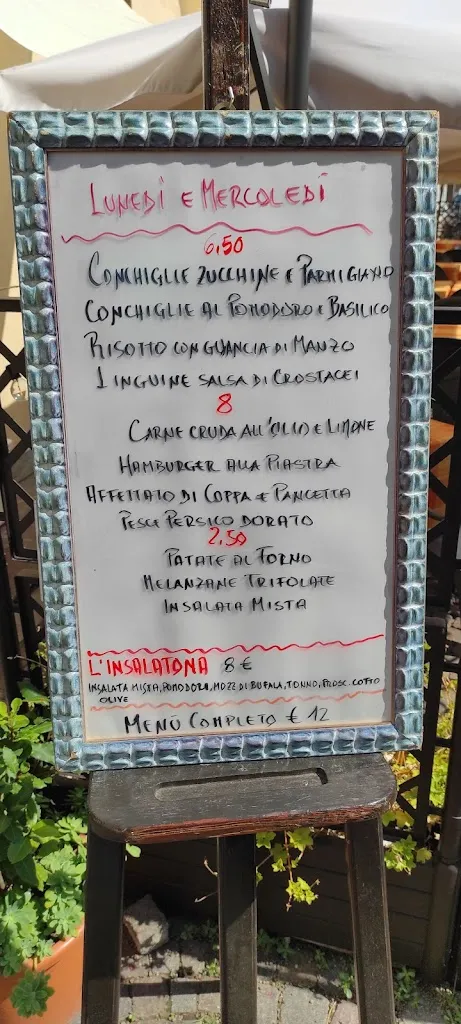 LUNEDÌ E MERCOLEDÌ
6,50
CONCHIGLIE ZUCCHINE E PARMIGIANO
CONCHIGLIE AL POMODORO E BASILICO
RISOTTO CON GUANCIA DI MANZO
LINGUINE SALSA DI CROSTACEI
8
CARNE CRUDA ALL'OLIO E LIMONE
HAMBURGER ALLA PIASTRA
AFFETTATO DI COPPA E PANCETTA
PESCE PERSICO DORATO
2,50
PATATE AL FORNO
MELANZANE TRIFOLATE
INSALATA MISTA
L'INSALATONA 8 €
INSALATA MISTA, POMODORI, MOZZ DI BUFALA, TONNO, PROSC. COTTO
OLIVE
MENÙ COMPLETO € 12